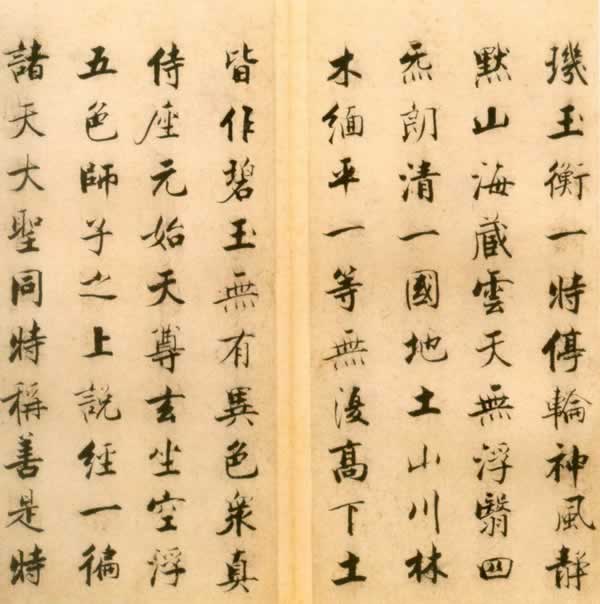 璣玉衡一時停輪神風靜
默山海藏雲天無浮翳四
炁朗清一國地土山川林
木緬平一等無復高下土
皆作碧玉無有異色衆真
侍座元始天尊玄坐空浮
五色師子之上説經一徧
諸天大聖同時稱善是時